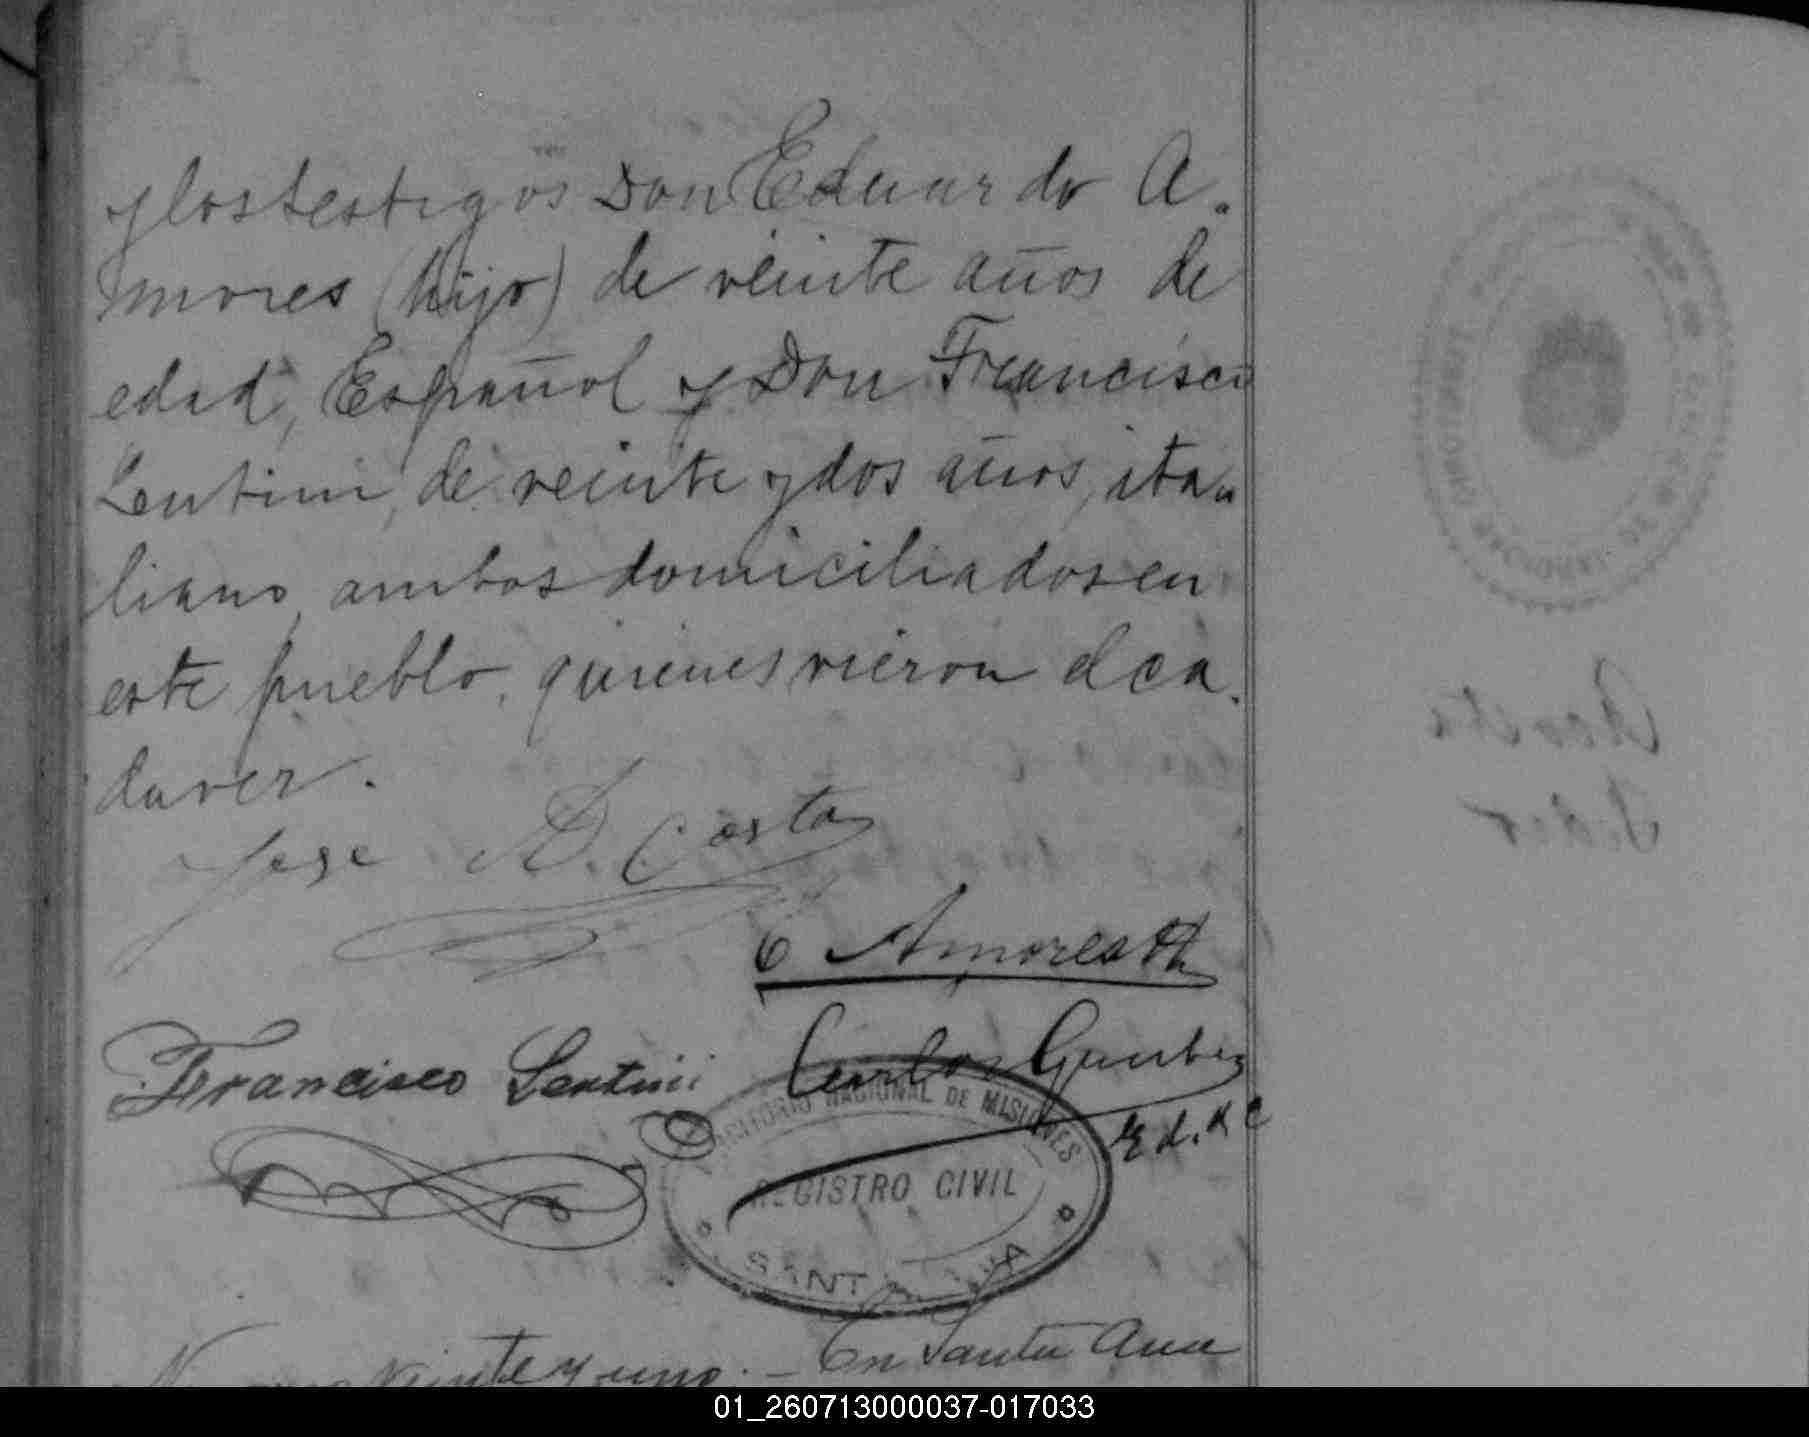 y los testigos Don Eduardo A.
mores (hijo) de veinte años de
edad, Español y Don Francisco
Lentini, de veinte y dos años, ita
liano, ambos domiciliados en
este pueblo, quienes vieron el ca.
daver.
Jose A. Costa
E Amores H
Francisco Lentini Carlos
TERRITORIO NACIONAL DE MISIONES
REGISTRO CIVIL
SANTA ANA
Numero veinte y uno. – En Santa Ana
01_260713000037-017033